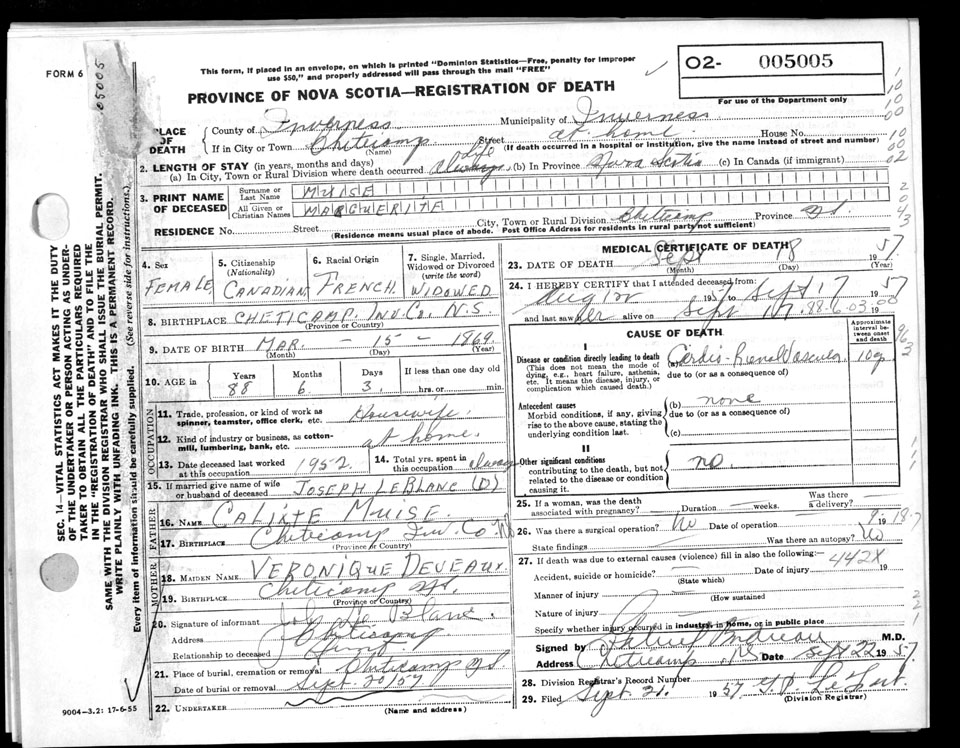 FORM 6
This form, if placed in an envelope, on which is printed "Dominion Statistics—Free, penalty for improper
use $50," and properly addressed will pass through the mail "FREE"
O2- 005005
For use of the Department only
PROVINCE OF NOVA SCOTIA—REGISTRATION OF DEATH
05005
SEC. 14—VITAL STATISTICS ACT MAKES IT THE DUTY
OF THE UNDERTAKER OR PERSON ACTING AS UNDER-
TAKER TO OBTAIN ALL THE PARTICULARS REQUIRED
IN THE "REGISTRATION OF DEATH" AND TO FILE THE
SAME WITH THE DIVISION REGISTRAR WHO SHALL ISSUE THE BURIAL PERMIT.
WRITE PLAINLY WITH UNFADING INK. THIS IS A PERMANENT RECORD.
Every item of information should be carefully supplied. (See reverse side for instructions.)
PLACE OF DEATH
County of Inverness Municipality of Inverness
If in City or Town Cheticamp Street at home House No.
(Name) (If death occurred in a hospital or institution, give the name instead of street and number)
2. LENGTH OF STAY (in years, months and days)
(a) In City, Town or Rural Division where death occurred always (b) In Province Life Nova Scotia (c) In Canada (if immigrant)
3. PRINT NAME OF DECEASED
Surname or Last Name MUISE
All Given or Christian Names MARGUERITE
RESIDENCE No. Street City, Town or Rural Division Cheticamp Province N.S.
(Residence means usual place of abode. Post Office Address for residents in rural party not sufficient)
4. Sex FEMALE
5. Citizenship (Nationality) CANADIAN
6. Racial Origin FRENCH
7. Single, Married, Widowed or Divorced (write the word) WIDOWED
8. BIRTHPLACE CHETICAMP. INV. CO. N.S.
(Province or Country)
9. DATE OF BIRTH MAR. — 15 — 1869
(Month) (Day) (Year)
10. AGE in Years 88 Months 6 Days 3 If less than one day old hrs. or min.
OCCUPATION
11. Trade, profession, or kind of work as spinner, teamster, office clerk, etc. Housewife.
12. Kind of industry or business, as cotton-mill, lumbering, bank, etc. at home.
13. Date deceased last worked at this occupation 1952
14. Total yrs. spent in this occupation always
15. If married give name of wife or husband of deceased JOSEPH LEBLANC (D)
FATHER
16. NAME CALIXTE MUISE.
17. BIRTHPLACE Cheticamp Inv. Co. NS
(Province or Country)
MOTHER
18. MAIDEN NAME VERONIQUE DEVEAUX.
19. BIRTHPLACE Cheticamp NS.
(Province or Country)
20. Signature of informant Le Blanc.
Address Cheticamp
Relationship to deceased
21. Place of burial, cremation or removal Cheticamp NS.
Date of burial or removal Sept. 20/57
22. UNDERTAKER
(Name and address)
9004—3.2: 17-6-55
MEDICAL CERTIFICATE OF DEATH
23. DATE OF DEATH Sept 18 1957.
(Month) (Day) (Year)
24. I HEREBY CERTIFY that I attended deceased from:
1957 to Sept 17 1957
and last saw her alive on Sept 17
CAUSE OF DEATH
Approximate interval between onset and death
I
Disease or condition directly leading to death (a) Cardio-Renal Vascular 10 y
(This does not mean the mode of dying, e.g., heart failure, asthenia, etc. It means the disease, injury, or complication which caused death.)
due to (or as a consequence of)
Antecedent causes
Morbid conditions, if any, giving rise to the above cause, stating the underlying condition last.
(b) none
due to (or as a consequence of)
(c)
II
Other significant conditions
contributing to the death, but not related to the disease or condition causing it.
no.
25. If a woman, was the death associated with pregnancy? Duration weeks. Was there a delivery?
26. Was there a surgical operation? No Date of operation 19
State findings Was there an autopsy? No
27. If death was due to external causes (violence) fill in also the following:—
442X
Accident, suicide or homicide? Date of injury 19
(State which)
Manner of injury
(How sustained)
Nature of injury
Specify whether injury occurred in industry, in home, or in public place
Signed by M.D.
Address Cheticamp NS Date Sept 22 1957.
28. Division Registrar's Record Number
29. Filed Sept. 21. 1957
(Division Registrar)